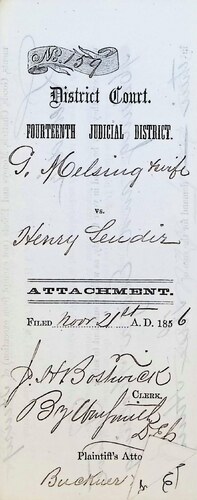 No. 159
District Court.
FOURTEENTH JUDICIAL DISTRICT.
G. Melsing & wife
vs.
Henry Lendir
ATTACHMENT.
FILED Nov 21st A.D. 1856
J. H. Bostwick
CLERK,
By
D. Clk
Plaintiff's Atto
Buckner &